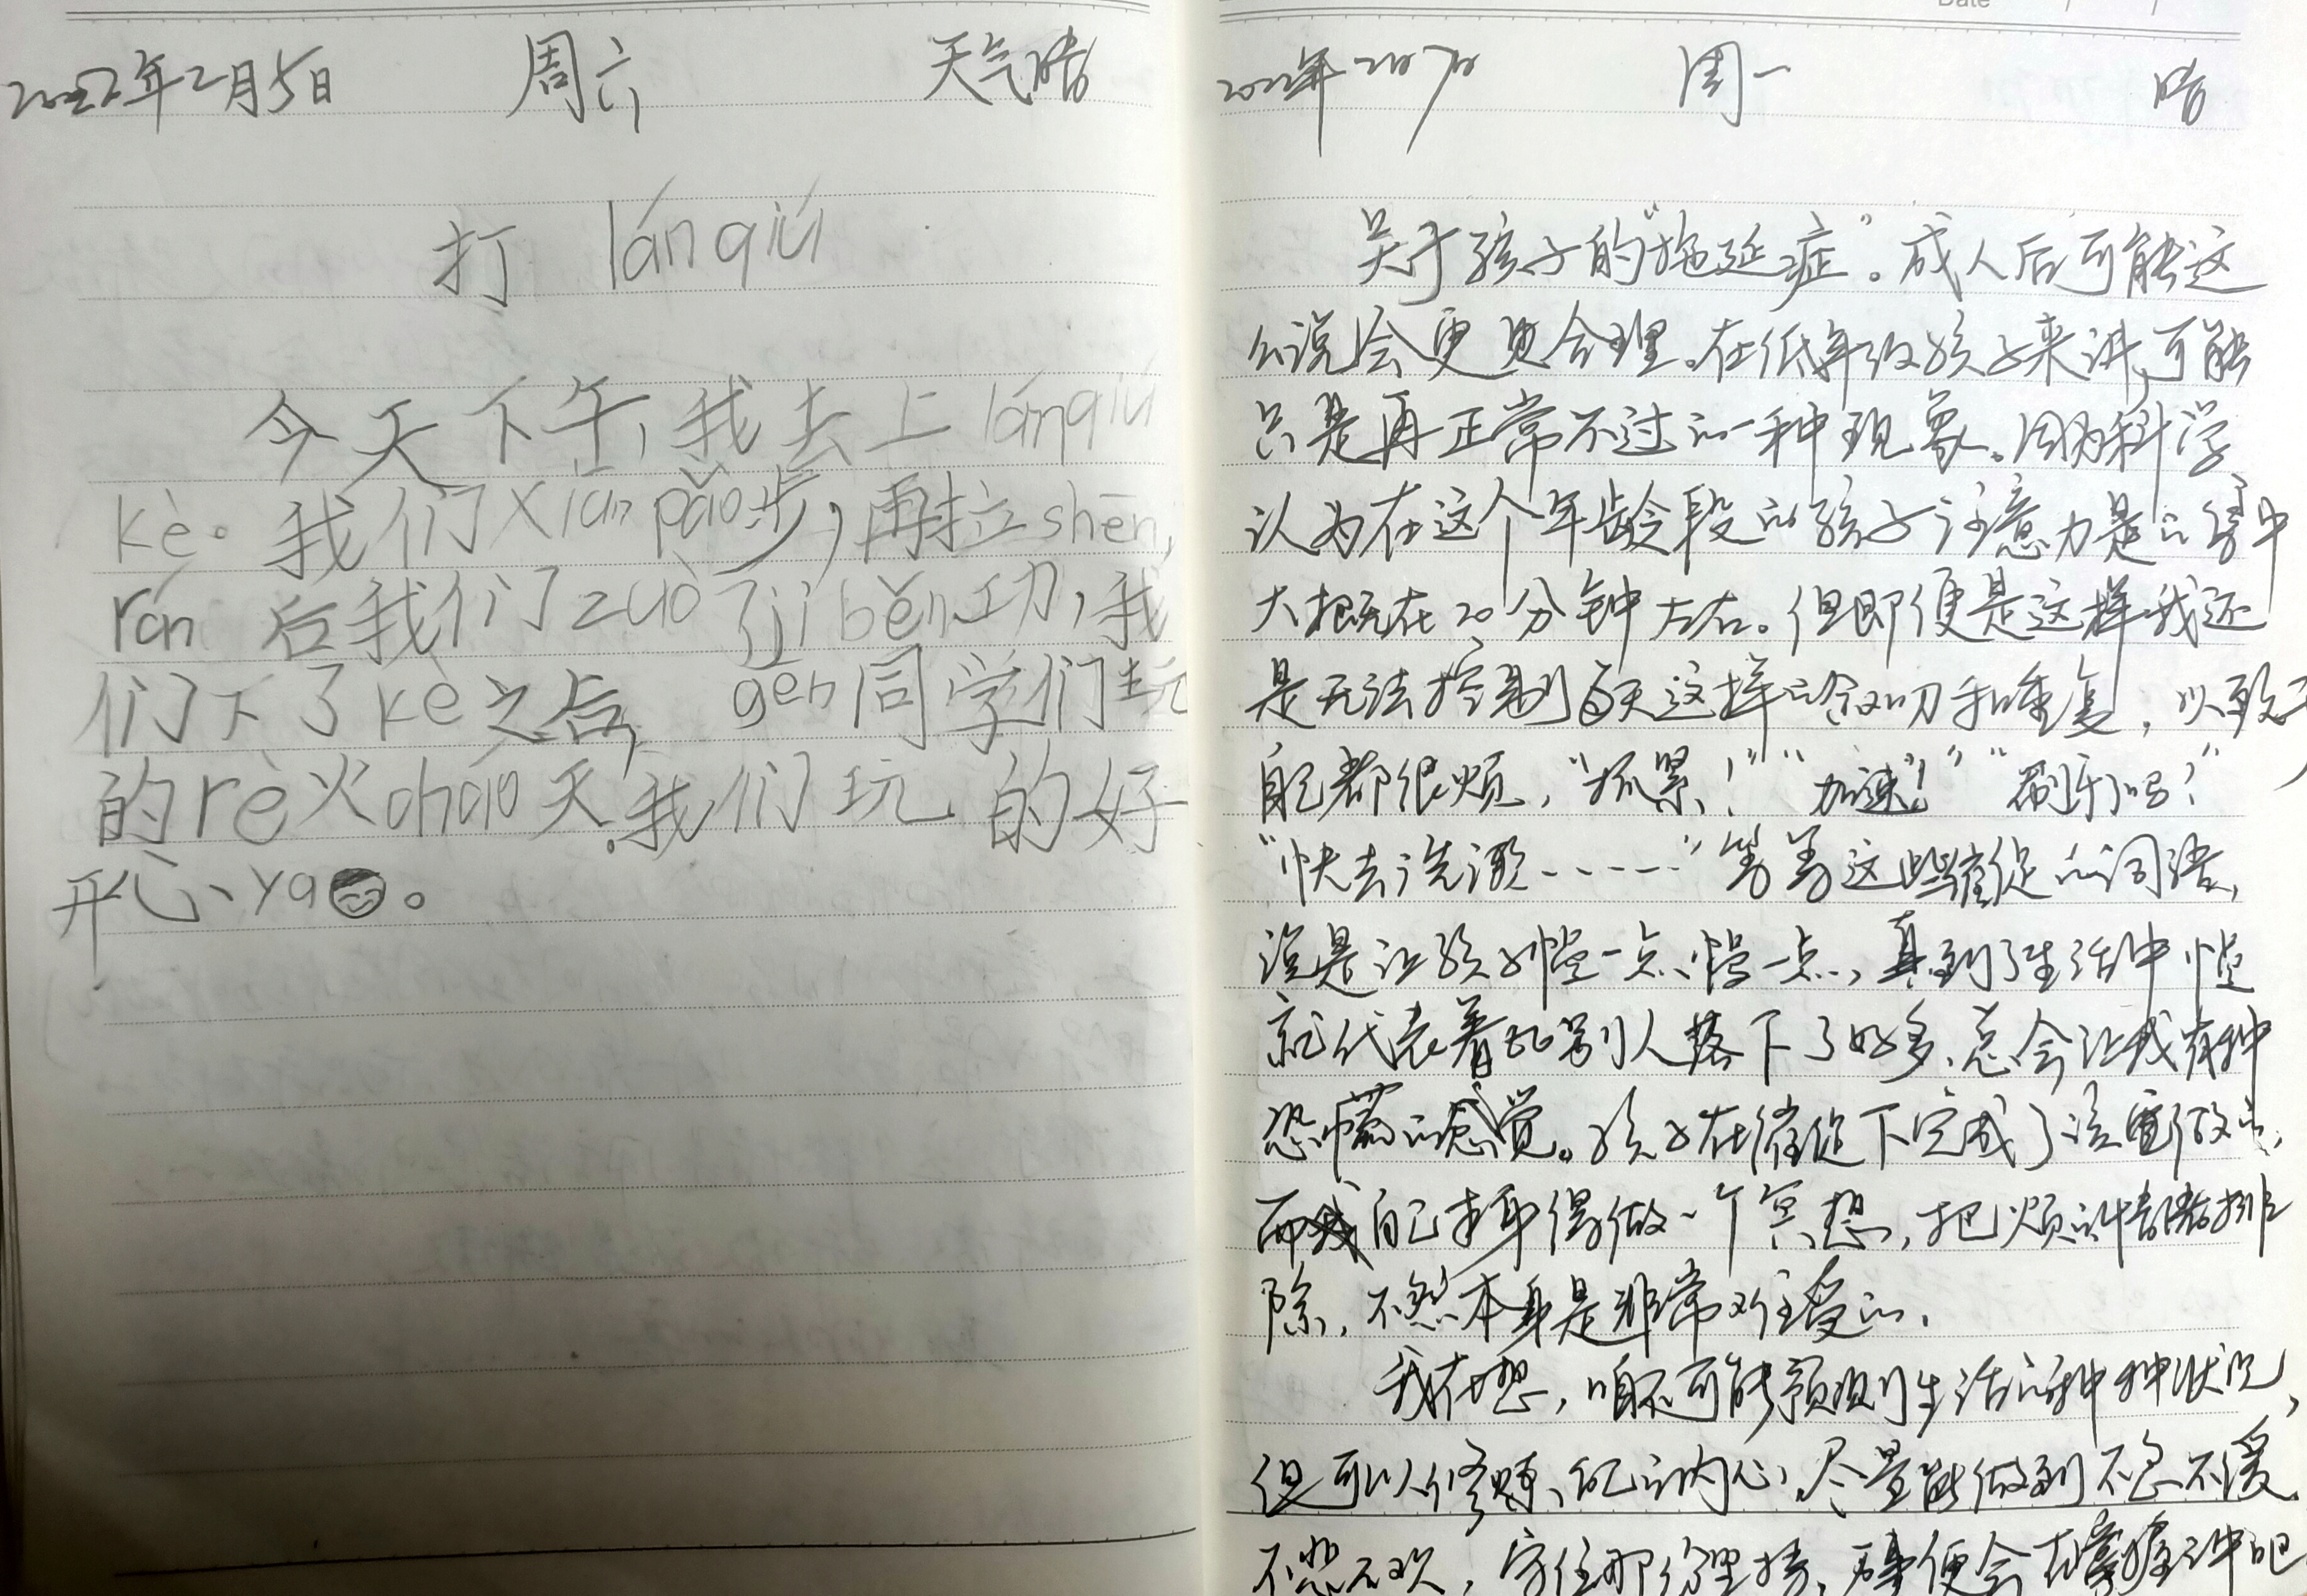 2022年2月5日 周六 天气晴
打 lánqiú
今天下午,我去上lánqiú
kè。我们xiān pǎo步,再拉shēn,
rán 后我们zuò了jīběn功,我
们下了kè之后, gēn同学们玩
的rè火cháo天.我们玩的好
开心、ya。
Date / /
2022年2月7日 周一 晴
关于孩子的“拖延症”。成人后可能这
么说会更更合理。在低年级孩子来讲,可能
只是再正常不过的一种现象。因为科学
认为在这个年龄段的孩子注意力是的集中
大概在20分钟左右。但即便是这样我还
是无法控制每天这样的叙叨和重复,以致于
自己都很烦,“抓紧!”“加速!”“刷牙了吗?”
“快去洗漱------”等等这些催促的词语,
说是让孩子慢一点、慢一点,真到了生活中慢
就代表着比别人落下了好多,总会让我有种
恐惧的感觉。孩子在催促下完成了该做的,
而我自己本身得做一个冥想,把烦的情绪排
除,不然本身是非常难受的.
我在想,咱不可能预测生活的种种状况,
但可以修炼自己的内心,尽量能做到不急不缓.
不悲不欢,守住那份坚持,万事便会在掌握之中吧